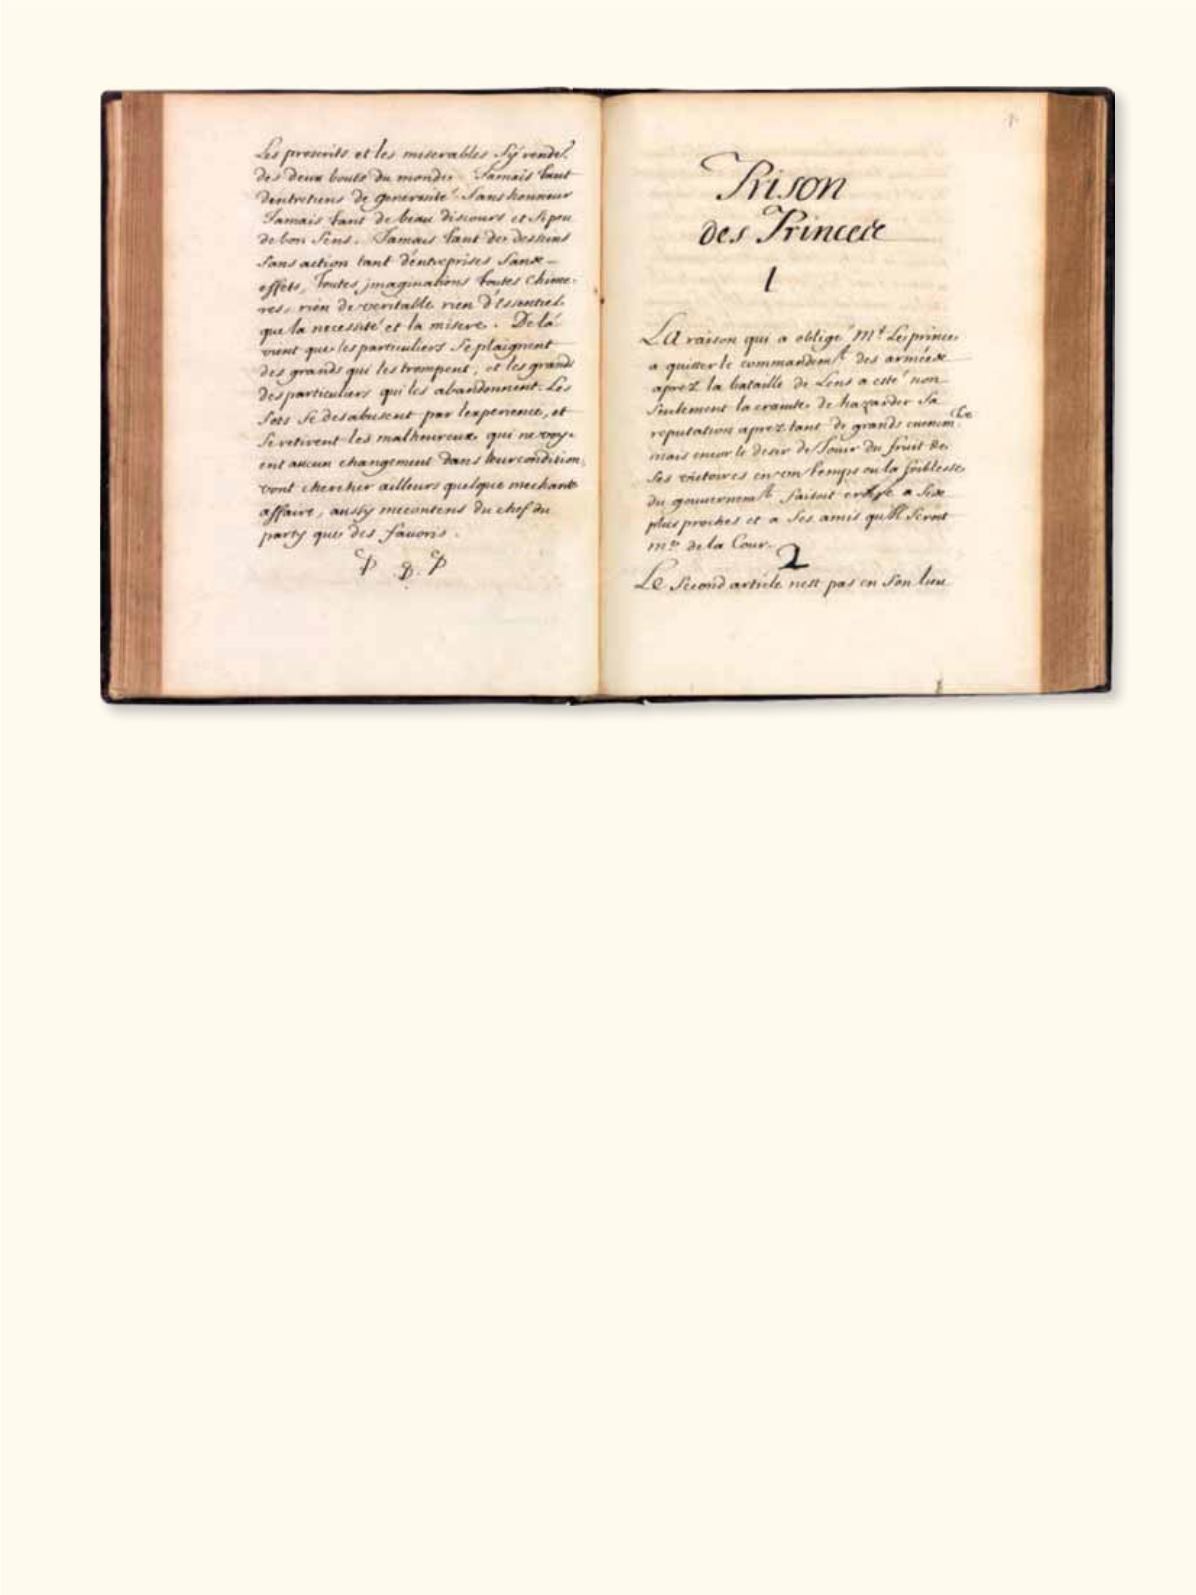 Les proscrits et les miserables s'y rendēt
des deux bouts du monde. Jamais tant
dentretiens de generosité sans honneur
Jamais tant de beau discours et si peu
de bon sens. Jamais tant des desseins
sans action tant d'entreprises sans
effets, toutes jmaginations toutes chime-
res, rien de veritable rien d'essentiel
que la necessité et la misere. De la
vient que les particuliers se plaignent
des grands qui les trompent, et les grands
des particuliers qui les abandonnent. Les
sots se desabusent par l'experience, et
se retirent les malheureux qui ne voy-
ent aucun changement dans leur condition,
vont chercher ailleurs quelque mechante
affaire, aussy mecontens du chef du
party que des fauoris.
Prison
des Princes
1
La raison qui a obligé Mr. Le prince
a quitter le commandemt. des armées
aprez la bataille de Lens a esté non
seulement la crainte de hazarder sa
reputation aprez tant de grands
mais encor le desir de Jouir du fruit de
ses victoires en vn temps ou la foiblesse
du gouuernemt. faisoit a ses
plus proches et a ses amis seroit
mre. de la Cour.
2
Le second article nest pas en son lieu